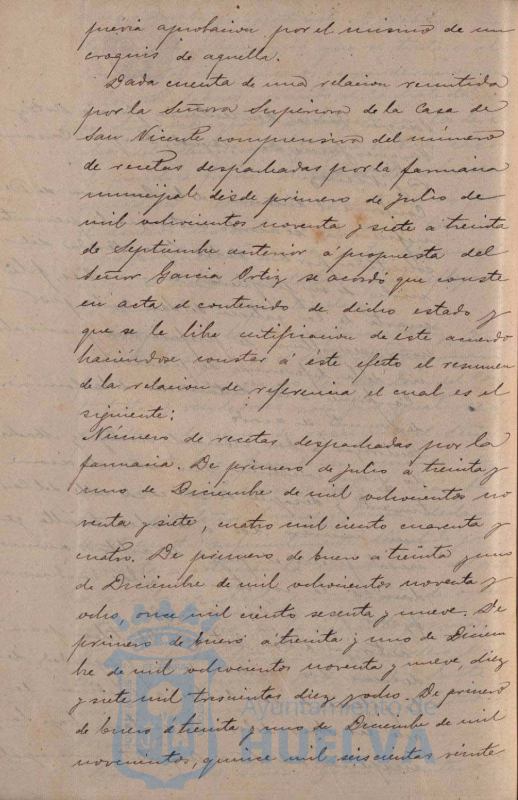 prévia aprobacion por el mismo de un
croquis de aquella.
Dada cuenta de una relacion remitida
por la Señora Superiora de la Casa de
San Vicente comprensiva del número
de recetas despachadas por la farmacia
municipal desde primero de julio de
mil ochocientos noventa y siete a treinta
de Septiembre anterior á propuesta del
Señor Garcia Ortiz se acordó que conste
en acta el contenido de dicho estado y
que se le libre certificacion de éste acuerdo
haciéndose constar á éste efecto el resumen
de la relacion de referencia el cual es el
siguiente:
Número de recetas despachadas por la
farmacia. De primero de julio á treinta y
uno de Diciembre de mil ochocientos no
venta y siete, cuatro mil ciento cuarenta y
cuatro. De primero de Enero a treinta y uno
de Diciembre de mil ochocientos noventa y
ocho, once mil ciento sesenta y nueve. De
primero de Enero á treinta y uno de Diciem
bre de mil ochocientos noventa y nueve, diez
y siete mil trescientas diez y ocho. De primero
de Enero a treinta y uno de Diciembre de mil
novecientos, quince mil seiscientas veinte
Ayuntamiento de
HUELVA